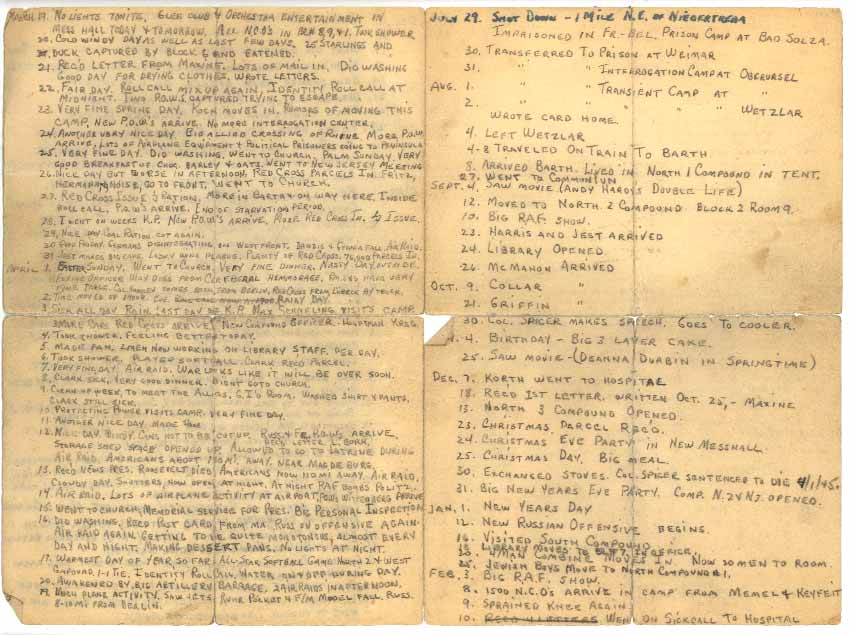 MARCH 19. NO LIGHTS TONITE, GLEE CLUB & ORCHESTRA ENTERTAINMENT IN
MESS HALL TODAY & TOMORROW. ALL NCO'S IN BLK 8,9,+1. TOOK SHOWER
20. COLD WINDY DAY AS WELL AS LAST FEW DAYS. 25 STARLINGS AND
DUCK CAPTURED BY BLOCK 6 AND EATENED.
21. REC'D LETTER FROM MAXINE. LOTS OF MAIL IN. DID WASHING
GOOD DAY FOR DRYING CLOTHES, WROTE LETTERS.
22. FAIR DAY. ROLL CALL MIX UP AGAIN, IDENTITY ROLL CALL AT
MIDNIGHT. TWO P.O.W.S CAPTURED TRYING TO ESCAPE.
23. VERY FINE SPRING DAY. KOCH MOVES IN. RUMORS OF MOVING THIS
CAMP, NEW P.O.W'S ARRIVE. NO MORE INTERROGATION CENTER.
24. ANOTHER VERY NICE DAY. BIG ALLIED CROSSING OF RHINE. MORE P.O.W
ARRIVE, LOTS OF AIRPLANE EQUIPMENT & POLITICAL PRISONERS GOING TO PENINSULA
25. VERY FINE DAY. DID WASHING, WENT TO CHURCH, PALM SUNDAY. VERY
GOOD BREAKFAST OF CHOC. BARLEY & OATS. WENT TO NEW JERSEY MEETING
26. NICE DAY BUT WORSE IN AFTERNOON, RED CROSS PARCELS IN. FRITZ,
HERMAN & NOISE, GO TO FRONT, WENT TO CHURCH.
27. RED CROSS ISSUE ½ RATION, MORE IN BARTH ON WAY HERE, INSIDE
ROLL CALL, P.O.W'S ARRIVE, END OF STARVATION PERIOD
28. I WENT ON WEEKS K.P. NEW P.O.W'S ARRIVE, MORE RED CROSS IN, ½ ISSUE,
29. NICE DAY COAL RATION CUT AGAIN.
30 GOOD FRIDAY, GERMANS DISINTEGRATING ON WEST FRONT. DANZIG & GYDNIA FALL. AIR RAID.
31 JEST MAKES BIG CAKE, PLENTY OF RED CROSS. 76,000 PARCELS IN.
APRIL 1. EASTER SUNDAY, WENT TO CHURCH, VERY FINE DINNER, NASTY DAY OUTSIDE.
CEREBERAL HEMMORAGE,
2. TIME MOVED UP 1 HOUR. RAINY DAY
3. SICK ALL DAY RAIN. LAST DAY OF K.P. MAX SCHMELING VISITS CAMP.
MORE BARS RED CROSS ARRIVE, NEW COMPOUND OFFICER.
4. TOOK SHOWER, FEELING BETTER TODAY.
5. MAGIC FAN, 2 MEN NOW WORKING ON LIBRARY STAFF, PER DAY,
6. TOOK SHOWER, PLAYED SOFTBALL, CLARK REC'D PARCEL.
7. VERY FINE DAY, AIR RAID. WAR LOOKS LIKE IT WILL BE OVER SOON.
8. CLARK SICK, VERY GOOD DINNER. DIDNT GO TO CHURCH.
9. CLEAN-UP WEEK, TO MEET THE ALLIES, G.I.'D ROOM. WASHED SHIRT & PANTS,
CLARK STILL SICK.
10. PROTECTING POWER VISITS CAMP. VERY FINE DAY.
11. ANOTHER NICE DAY MADE
12. NICE DAY, WINDY. CANS NOT TO BE CUT UP. RUSS. & FR. P.O.W'S ARRIVE.
REC'D LETTER L. BORK,
STORAGE SHED SPACE OPENED UP, ALLOWED TO GO TO LATRINE DURING
AIR RAID. AMERICANS ABOUT 115 MI. AWAY. NEAR MAGDEBURG.
13. REC'D NEWS PRES. ROOSEVELT DIED. AMERICANS NOW 110 MI AWAY. AIR RAID,
CLOUDY DAY. SHUTTERS, NOW OPEN AT NIGHT. AT NIGHT RAF BOMBS POLITZ.
14. AIR RAID. LOTS OF AIRPLANE ACTIVITY AT AIRPORT, POW'S WITTENBERG ARRIVE
15. WENT TO CHURCH, MEMORIAL SERVICE FOR PRES. BIG PERSONAL INSPECTION.
16. DID WASHING, REC'D POST CARD, FROM MA. RUSS ON OFFENSIVE AGAIN.
AIR RAID AGAIN GETTING TO BE QUITE MONOTONOUS, ALMOST EVERY
DAY AND NIGHT, MAKING DESSERT PANS. NO LIGHTS AT NIGHT.
17. WARMEST DAY OF YEAR SO FAR. ALL-STAR SOFTBALL GAME NORTH 2 & WEST
COMPOUND 1-1 TIE. IDENTITY ROLL CALL, WATER ON & OFF DURING DAY.
20. AWAKENED BY BIG ARTILLERY BARRAGE, 2 AIR RAIDS IN AFTERNOON.
MUCH PLANE ACTIVITY. SAW JETS RUHR POCKET & F/M MODEL FALL. RUSS.
8-10 MI FROM BERLIN.
JULY 29. SHOT DOWN - 1 MILE N.E. OF NIEDERTREBA
IMPRISONED IN FR.-BEL. PRISON CAMP AT BAD SOLZA.
30. TRANSFERRED TO PRISON AT WEIMAR
31. " " INTERROGATION CAMP AT OBERURSEL
AUG. 1. " " TRANSIENT CAMP AT
2. " " " " " WETZLAR
WROTE CARD HOME.
4. LEFT WETZLAR
4-8 TRAVELED ON TRAIN TO BARTH
8. ARRIVED BARTH. LIVED IN NORTH 1 COMPOUND IN TENT.
27. WENT TO COMMUNION
SEPT. 4. SAW MOVIE (ANDY HARDYS DOUBLE LIFE)
12. MOVED TO NORTH 2 COMPOUND BLOCK 2 ROOM 9.
10. BIG RAF. SHOW.
23. HARRIS AND JEST ARRIVED
24. LIBRARY OPENED
26. MCMAHON ARRIVED
OCT. 9. COLLAR "
21. GRIFFIN "
30. COL. SPICER MAKES SPEECH. GOES TO COOLER.
4. BIRTHDAY - BIG 3 LAYER CAKE.
25. SAW MOVIE - (DEANNA DURBIN IN SPRINGTIME)
DEC. 7. KORTH WENT TO HOSPITAL
18. REC'D 1ST LETTER. WRITTEN OCT. 25, - MAXINE
13. NORTH 3 COMPOUND OPENED.
23. CHRISTMAS PARCEL REC'D.
24. CHRISTMAS EVE PARTY IN NEW MESSHALL.
25. CHRISTMAS DAY, BIG MEAL.
30. EXCHANGED STOVES. COL. SPICER SENTENCED TO DIE 4/1/45.
31. BIG NEW YEARS EVE PARTY. COMP. N.2 & N3. OPENED.
JAN. 1. NEW YEARS DAY
12. NEW RUSSIAN OFFENSIVE BEGINS.
16. VISITED SOUTH COMPOUND
LIBRARY MOVES TO BLK 7,
4 MAN COMBINE MOVES IN. NOW 20 MEN TO ROOM.
25. JEWISH BOYS MOVE TO NORTH COMPOUND #1,
FEB. 3. BIG R.A.F. SHOW.
8. 1500 N.C.O'S ARRIVE IN CAMP FROM MEMEL & KEYFEIT
9. SPRAINED KNEE AGAIN
10. REC'D 4 LETTERS WENT ON SICKCALL TO HOSPITAL